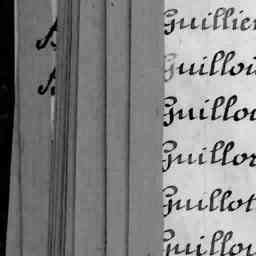 Guillie
Guillo
Guillo
Guillo
Guillot
Guillo